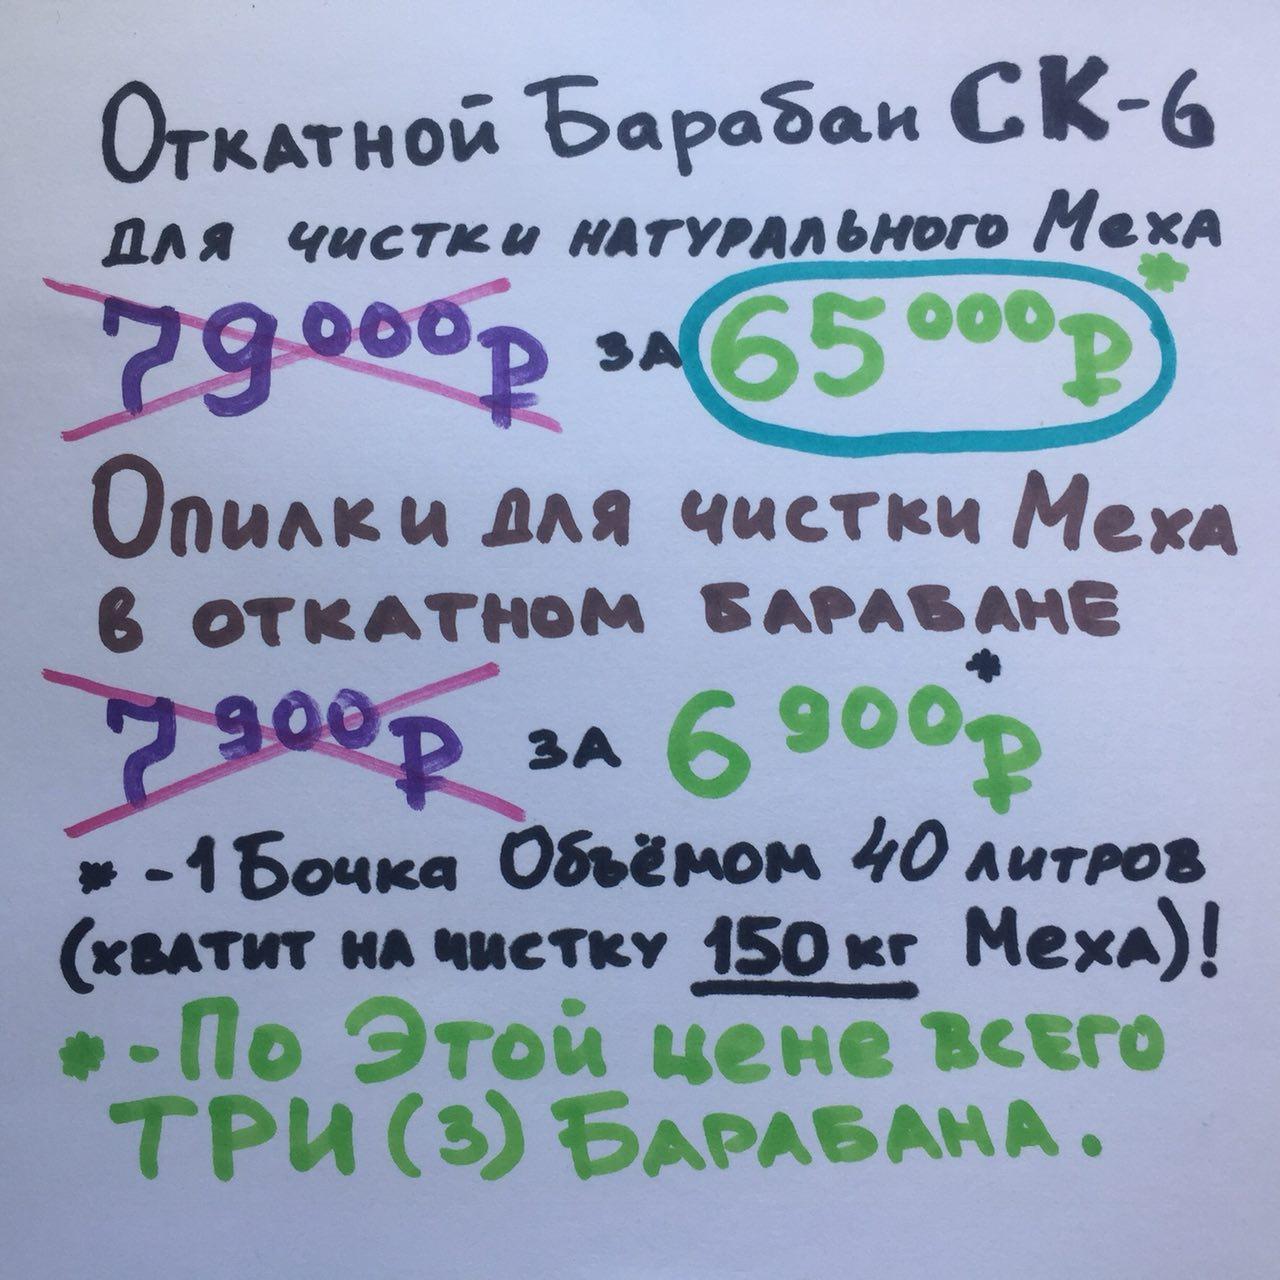 Откатной Барабан СК-6
для чистки натурального Меха
79 000₽ за 65 000₽*
Опилки для чистки Меха
в откатном барабане
7 900₽ за 6 900₽*
* - 1 Бочка Объёмом 40 литров
(хватит на чистку 150 кг Меха)!
* - По Этой цене всего
ТРИ (3) БАРАБАНА.